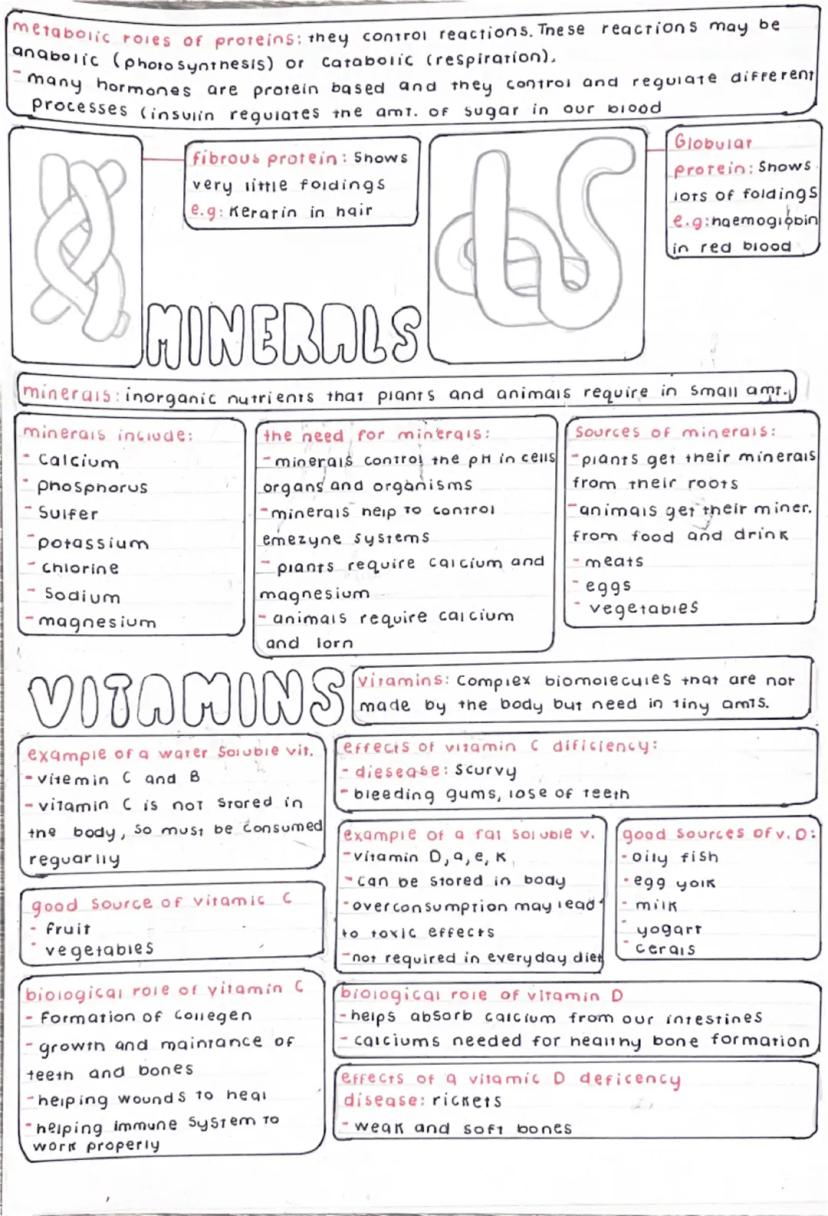 metabolic roles of proteins: they control reactions. These reactions may be
anabolic (photosynthesis) or catabolic (respiration).
- many hormones are protein based and they control and regulate different
processes (insulin regulates the amt. of sugar in our blood
fibrous protein: shows
very little foldings
e.g: Keratin in hair
Globular
protein: Shows
lots of foldings
e.g: haemoglobin
in red blood
MINERALS
minerals: inorganic nutrients that plants and animals require in small amt.
minerals include:
- calcium
- phosphorus
- Sulfer
- potassium
- chlorine
- Sodium
- magnesium
the need for minerals:
- minerals control the pH in cells
organs and organisms
- minerals help to control
emezyne systems
- plants require calcium and
magnesium
- animals require calcium
and Iorn
Sources of minerals:
- plants get their minerals
from their roots
- animals get their miner.
from food and drink
- meats
- eggs
- vegetables
VITAMINS
vitamins: Complex biomolecules that are not
made by the body but need in tiny amts.
example of a water soluble vit.
- vitemin C and B
- vitamin C is not stored in
the body, so must be consumed
reguarlly
effects of vitamin C dificiency:
- diesease: Scurvy
- bleeding gums, lose of teeth
good source of vitamic C
- fruit
- vegetables
example of a fat soluble v.
- vitamin D, a, e, K
- can be stored in body
- overconsumption may lead
to toxic effects
- not required in everyday diet
good sources of v. D:
- oily fish
- egg yolk
- milk
- yogart
- cerals
biological role of vitamin C
- Formation of collegen
- growth and maintance of
teeth and bones
- helping wounds to heal
- helping immune system to
work properly
biological role of vitamin D
- helps absorb calcium from our intestines
- calciums needed for healthy bone formation
effects of a vitamic D deficency
disease: rickets
- weak and soft bones